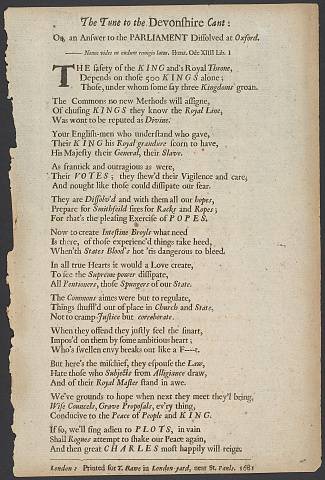 The Tune to the Devonshire Cant:
Or, an Answer to the PARLIAMENT Dissolved at Oxford.
Nonne vides ut nudum remigio latus. Horat. Ode XIIII Lib. I
THE safety of the KING and's Royal Throne,
Depends on those 500 KINGS alone;
Those, under whom some say three Kingdoms groan.
The Commons no new Methods will assigne,
Of chusing KINGS they know the Royal Line,
Was wont to be reputed as Devine.
Your English-men who understand who gave,
Their KING his Royal grandure scorn to have,
His Majesty their General, their Slave.
As frantick and outragious as were,
Their VOTES; they shew'd their Vigilence and care,
And nought like those could dissipate our fear.
They are Dissolv'd and with them all our hopes,
Prepare for Smithfield fires for Racks and Ropes;
For that's the pleasing Exercise of POPES.
Now to create Intestine Broyls what need
Is there, of those experienc'd things take heed,
When'th States Blood's hot 'tis dangerous to bleed.
In all true Hearts it would a Love create,
To see the Supreme power dissipate,
All Pentioners, those Spungers of our State.
The Commons aimes were but to regulate,
Things shuffl'd out of place in Church and State,
Not to cramp Justice but corroborate.
When they offend they justly feel the smart,
Impos'd on them by some ambitious heart;
Who's swellen envy breaks out like a F—t.
But here's the mischief, they espouse the Law,
Hate those who Subjects from Allegiance draw,
And of their Royal Master stand in awe.
We've grounds to hope when next they meet they'l bring,
Wise Councels, Grave Proposals, ev'ry thing,
Conducive to the Peace of People and KING.
If so, we'll sing adieu to PLOTS, in vain
Shall Rogues attempt to shake our Peace again,
And then great CHARLES most happily will reign.
London: Printed for T. Rawe in London-yard, near St. Pauls. 1681